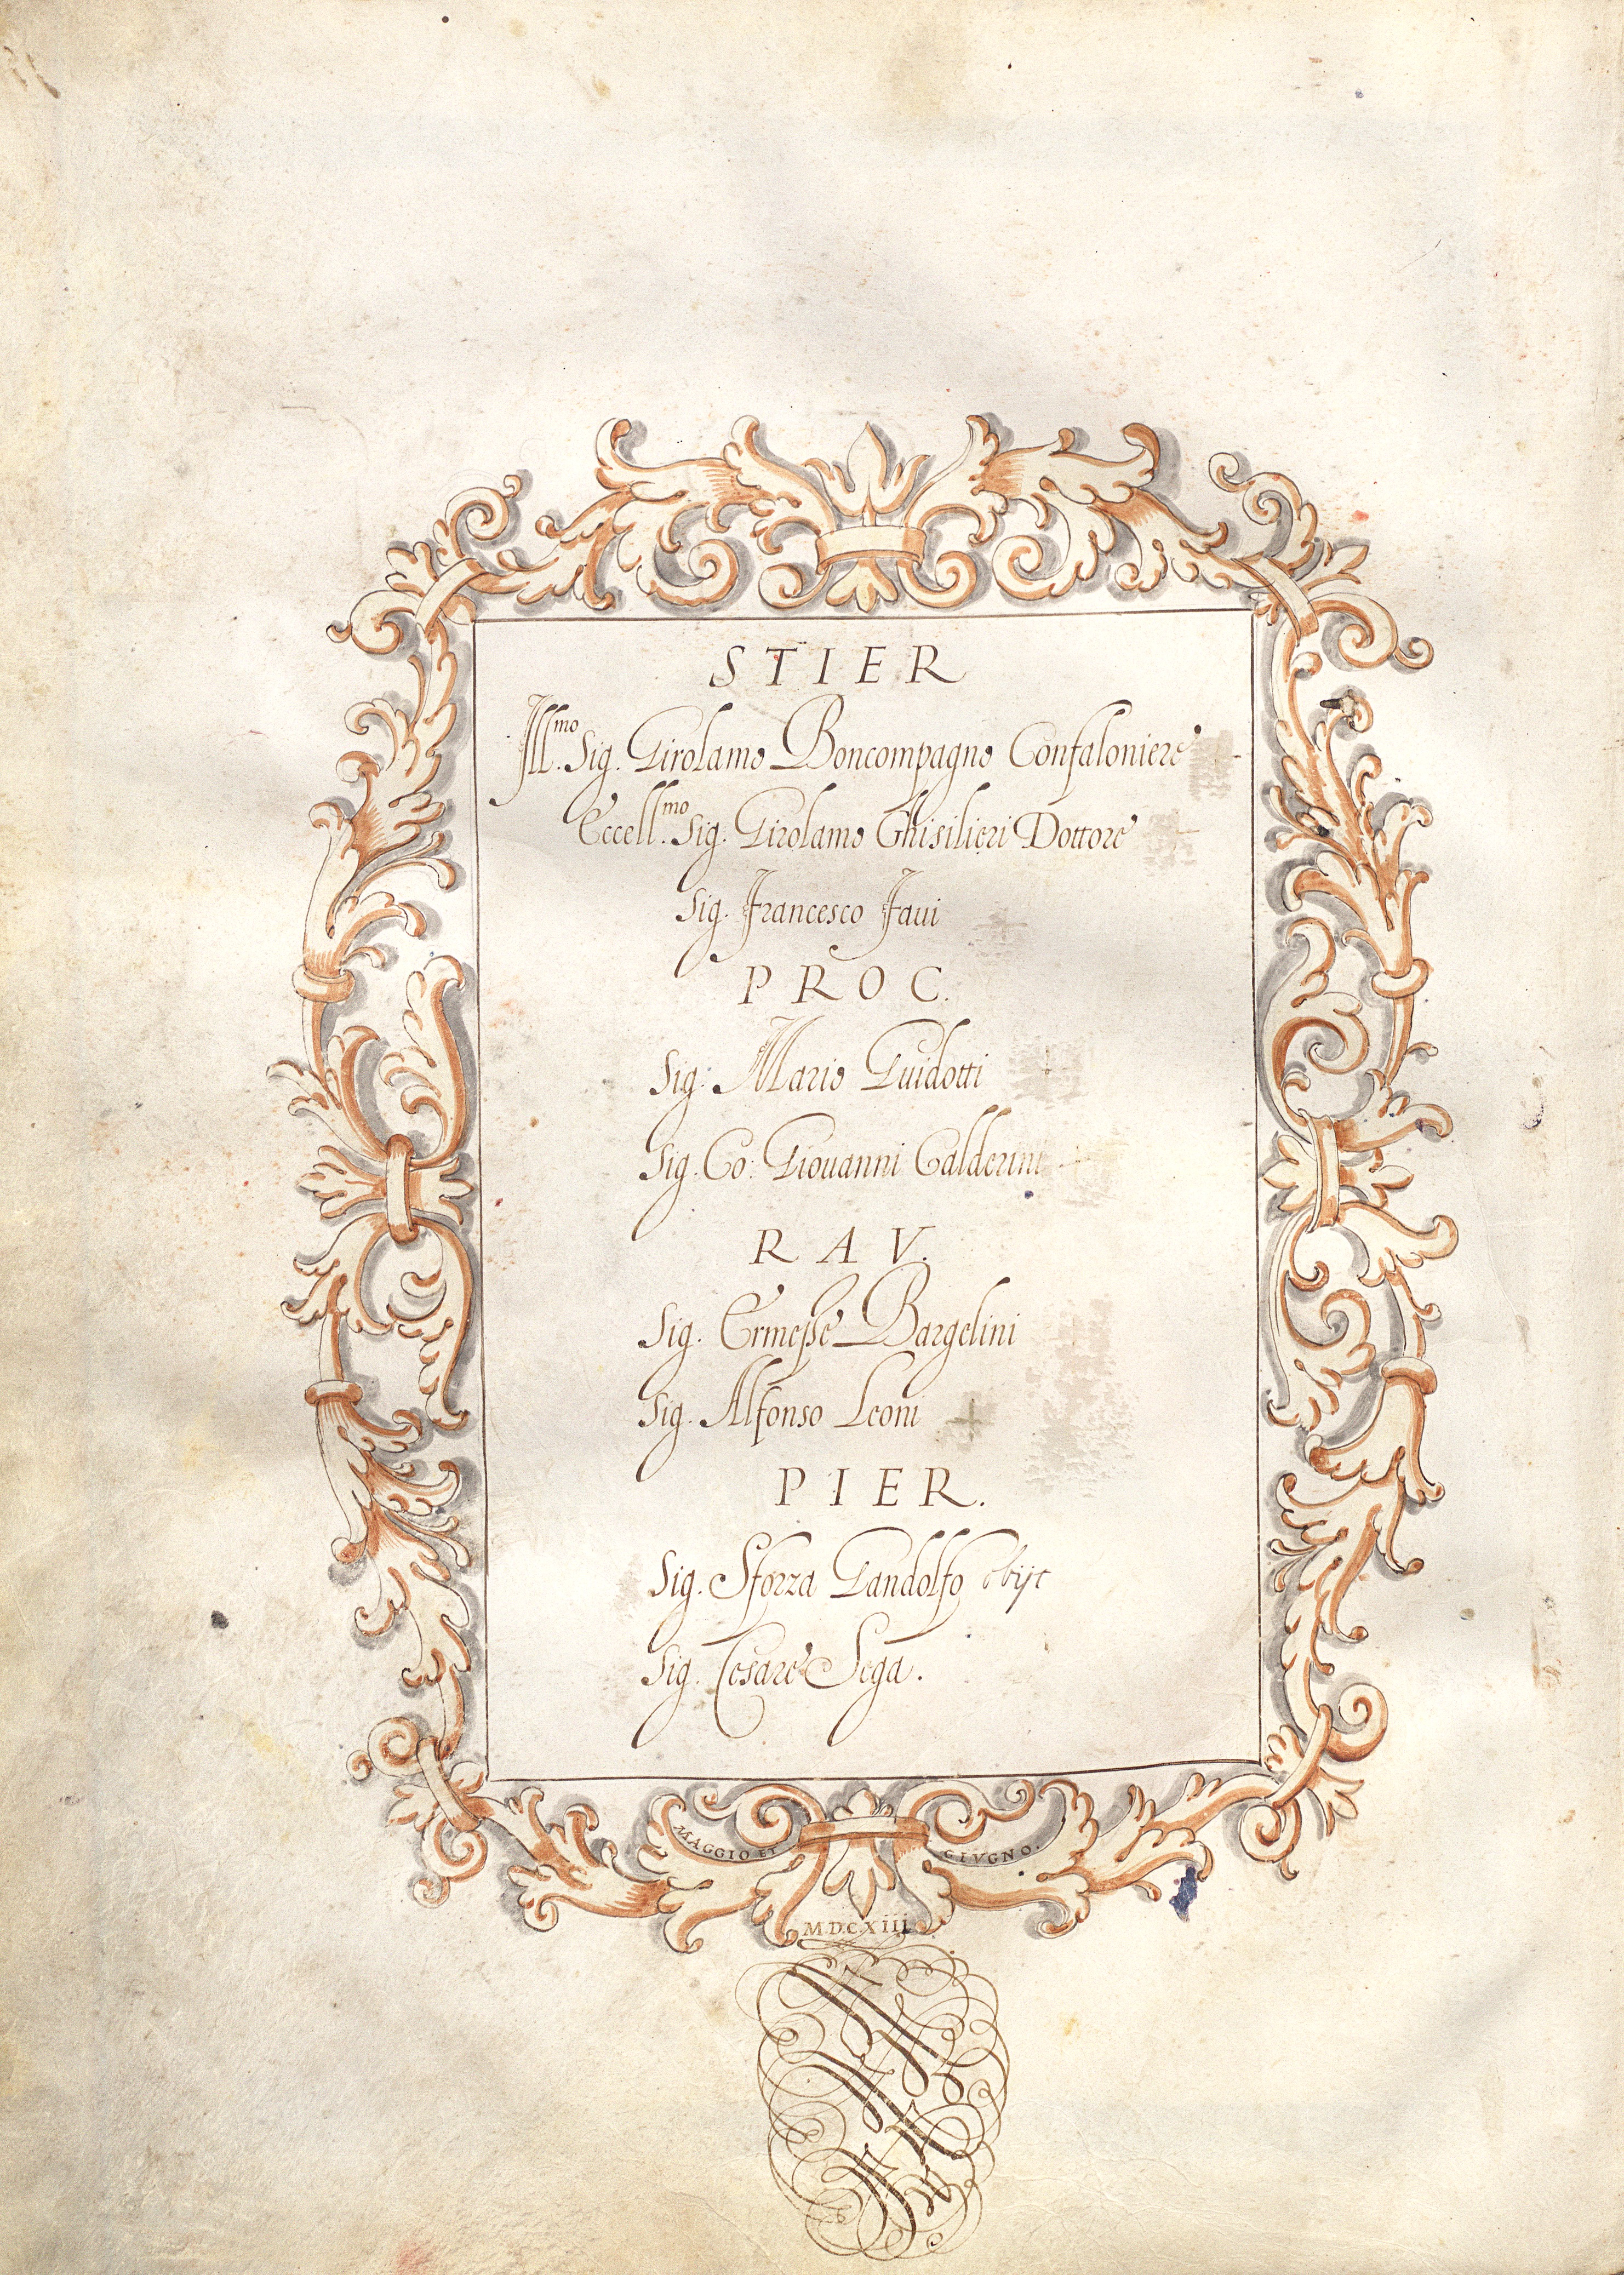 STIER
Ill.mo Sig. Girolamo Boncompagno Confaloniere
Eccell.mo Sig. Girolamo Ghisilieri Dottore
Sig. Francesco Faui
PROC.
Sig. Mario Guidotti
Sig. Co: Giouanni Calderini
RAV.
Sig. Ermesse Bargelini
Sig. Alfonso Leoni
PIER.
Sig. Sforza Gandolfo obijt
Sig. Cesare Sega.
MAGGIO ET GIVGNO.
M.D.C.XIII.